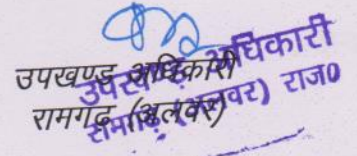 उपखण्ड अधिकारी
रामगढ़ (अलवर)
उपखण्ड अधिकारी
रामगढ़ (अलवर) राज०